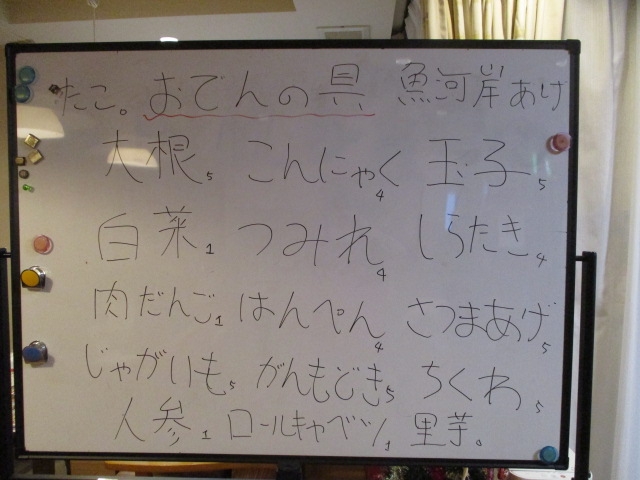 たこ。おでんの具 魚河岸あげ
大根5 こんにゃく4 玉子5
白菜1 つみれ4 しらたき4
肉だんご1 はんぺん4 さつまあげ5
じゃがいも5 がんもどき5 ちくわ5
人参1 ロールキャベツ1 里芋。